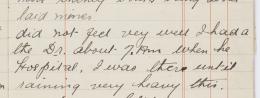 laid
did not feel very well I had a
the Dr. about 7 Pm when he
Hospital, I was there until
raining very heavy this.